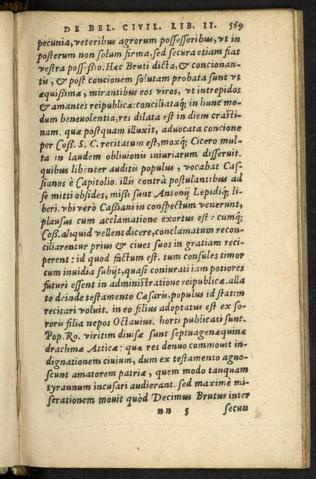 DE BEL. CIVIL. LIB. II. 569
pecunia, veteribus agrorum possessoribus, vt in
posterum non solum firma, sed secura etiam fiat
vestra possessio. Haec Bruti dicta, & concionan-
tis, & post concionem solutam probata sunt vt
aequissima, mirantibus eos viros, vt intrepidos
& amantes reipublicae: conciliataq; in hunc mo-
dum beneuolentia, res dilata est in diem crasti-
nam. quae postquam illuxit, aduocata concione
per Coss. S. C. recitatum est, moxq; Cicero mul-
ta in laudem obliuionis iniuriarum disseruit.
quibus libenter auditis populus, vocabat Cas-
sianos è Capitolio. illis contrà postulantibus ad
se mitti obsides, missi sunt Antonij Lepidiq; li-
beri. vbi verò Cassiani in conspectum venerunt,
plausus cum acclamatione exortus est: cumq;
Coss. aliquid vellent dicere, conclamatum recon-
ciliarentur prius & ciues suos in gratiam reci-
perent: id quod factum est. tum consules timor
cum inuidia subijt, quasi coniurati iam potiores
futuri essent in administratione reipublicae. alla
to deinde testamento Caesaris, populus id statim
recitari voluit. in eo filius adoptatus est ex so-
roris filia nepos Octauius. horti publicati sunt.
Pop. Ro. viritim diuisae sunt septuagenaequinae
drachmae Atticae: quae res denuo commouit in-
dignationem ciuium, dum ex testamento agno-
scunt amatorem patriae, quem modo tanquam
tyrannum incusari audierant. sed maximè mi-
serationem mouit quòd Decimus Brutus inter
nn 5 secun